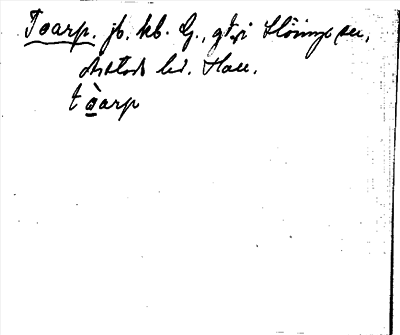 Toarp. jb. kb. G., gd, i Slöinge sn,
Årstads hd. Hall.
tòarp